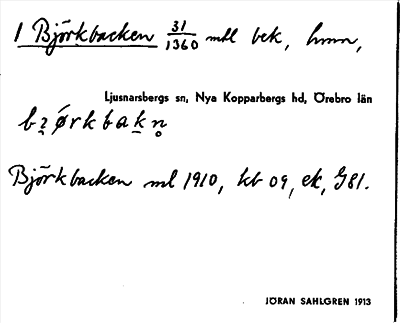 1 Björkbacken 31/1360 mtl bek, hmn,
Ljusnarsbergs sn, Nya Kopparbergs hd, Örebro län
Björkbacken ml 1910, kb 09, ek, G81.
JÖRAN SAHLGREN 1913